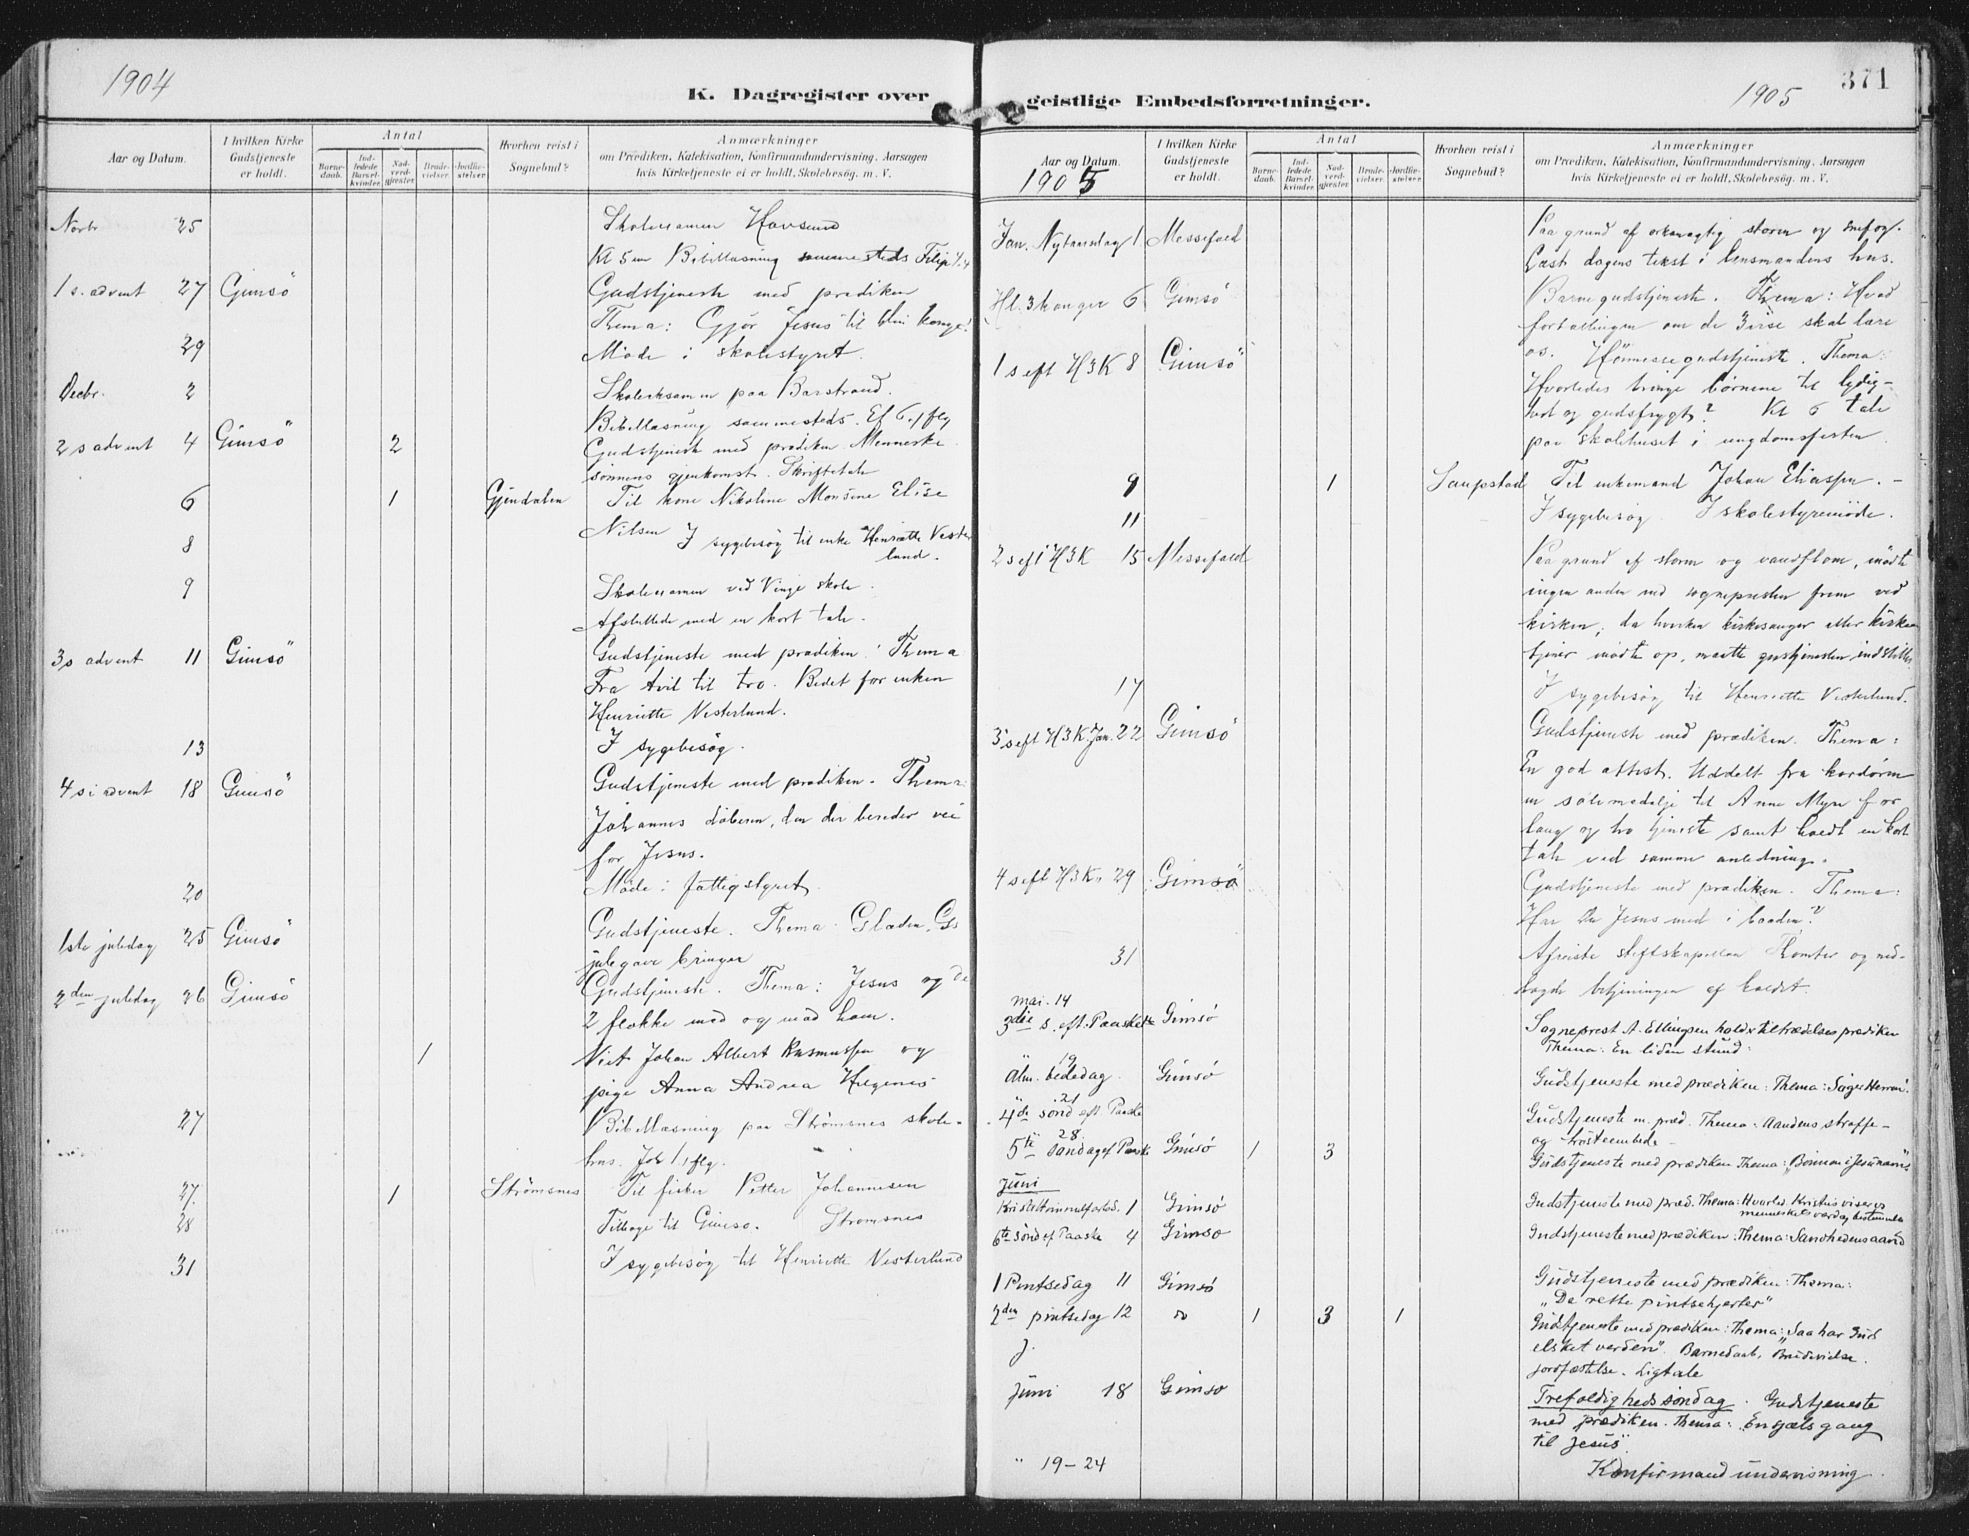 1904
K. Dagregister over
Aar og Datum.
I hvilken Kirke Gudstjeneste er holdt.
Antal
Barnedaab.
Indledede Barselkvinder.
Nadverdgjester.
Brudevielser.
Jordfæstelser.
Hvorhen reist i Sognebud?
Anmærkninger
om Prædiken, Katekisation, Konfirmandundervisning. Aarsagen
hvis Kirketjeneste ei er holdt. Skolebesøg. m. V.
Novbr 25 Skoleexamen Hovsund
Kl 5 em Bibellæsning sammesteds Filip
1 s. advent 27 Gimsö Gudstjeneste med prediken
Thema: Gjør Jesus til din konge!
29 Møde i skolestyret.
Decbr. 2 Skoleeksamen paa Barstrand.
Bibellæsning sammesteds. Ef 6, 1 flg
2 s advent 4 Gimsö 2 Gudstjeneste med prædiken Menneske
sønnens gjenkomst. Skriftetale
6 1 Gjendalen Til kone Nikoline Monsine Elise
Nilsen
8 I sygebesøg til enke Henriette Vester
lund.
9 Skoleexamen ved Vinje skole.
Afsluttede med en kort tale.
3 s advent 11 Gimsö Gudstjeneste med prædiken. Thema
Fra tvil til tro. Bedet for enken
Henriette Vesterlund.
13 I sygebesøg.
4 s i advent 18 Gimsö Gudstjeneste med prædiken. Thema
Johannes døberen, den der bereder vei
for Jesus.
20 Møde i fattigstyret.
1ste juledag 25 Gimsö Gudstjeneste. Thema Glæden, Gs
julegave bringer
2den juledag 26 Gimsö Gudstjeneste. Thema: Jesus og de
2 flokke mod og med ham.
1 Viet Johan Albert Rasmussen og
pige Anna Andrea Helgenes
27 Bibellæsning paa Strömsnes skole-
hus. Joh 1, 1 flg.
27. 1 Strömsnes Til fisker Petter Johannesen
28 Tilbage til Gimsö. Strömsnes
31 I sygebesøg til Henriette Vesterlund
geistlige Embedsforretninger.
1905
371
Aar og Datum.
1905
I hvilken Kirke Gudstjeneste er holdt.
Antal
Barnedaab.
Indledede Barselkvinder.
Nadverdgjester.
Brudevielser.
Jordfæstelser.
Hvorhen reist i Sognebud?
Anmærkninger
om Prædiken, Katekisation, Konfirmandundervisning. Aarsagen
hvis Kirketjeneste ei er holdt. Skolebesøg. m. V.
Jan. Nytaarsdag 1 Messefald Paa grund af orkanagtig storm og snefog.
Læst dagens tekst i lensmandens hus.
Hl. 3 konger 6 Gimsö Barnegudstjeneste. Thema: Hvad
fortællingen om de 3 vise skal lære
1 s eft H3K 8 Gimsö os. Höimessegudstjeneste. Thema:
Hvorledes bringe börnene til lydig-
hed og gudsfrygt? Kl 6 tale
paa skolehuset i ungdomsfesten.
9 1 Saupstad Til enkemand Johan Eliassen. –
11 I sygebesøg I skolestyremöde.
2 s eft H3K 15 Messefald Paa grund af storm og vandflom, mödte
ingen anden end sognepresten frem ved
kirken; da hverken kirkesanger eller kirke
tjener mödte op, maatte gustjenesten indstilles.
17 I sygebesøg til Henriette Vesterlund.
3 s eft H3K. Jan. 22 Gimsö Gudstjeneste med prædiken. Thema:
En god attest. Uddelt fra kordören
en sølvmedalje til Anne Myre for
lang og tro tjeneste samt holdt en kort
tale ved samme anledning.
4 s eft H3K. 29 Gimsö Gudstjeneste med prædiken. Thema:
Har du Jesus med i baaden?
31 Afreiste stiftskapellan Tomter og ned-
lagde betjeningen af kaldet.
mai. 14
3die s. eft. Paaske Gimsö Sogneprest A. Ellingsen holdt tiltrædelsesprædiken
Thema: En liden stund.
19
Alm. bededag. Gimsö Gudstjeneste med prædiken: Thema: Søger Herren!
21
4de sønd eft Paaske Gudstjeneste m. præd. Thema: Aandens straffe-
og trösteembede –
28.
5te Søndag ef Paaske Gimsö 1 3 Gudstjeneste med prædiken Thema: "Bønnen i Jesu navn"
Juni
Kristi Himmelfartsd. 1 Gimsö Gudstjeneste med præd. Thema: Hvorled. Kristus viser os
menneskets værd og bestemmelse
6te sønd ef Paaske 4 Gimsö Gudstjeneste med prædiken: Thema: Sandhedens aand
1 Pintsedag 11 Gimsö Gudstjeneste med prædiken: Thema:
"De rette pintsehjerter"
2den pintsedag 12 do 1 3 1 Gudstjeneste med prædiken: Thema: "Saa har Gud
elsket verden". Barnedaab, Brudevielse.
jordfæstelse. Ligtale
Juni 18 Gimsö Trefoldighedssöndag. Gudstjeneste
med prædiken. Thema: "En sjæls gang
til Jesus".
" 19–24 Konfirmandundervisning.